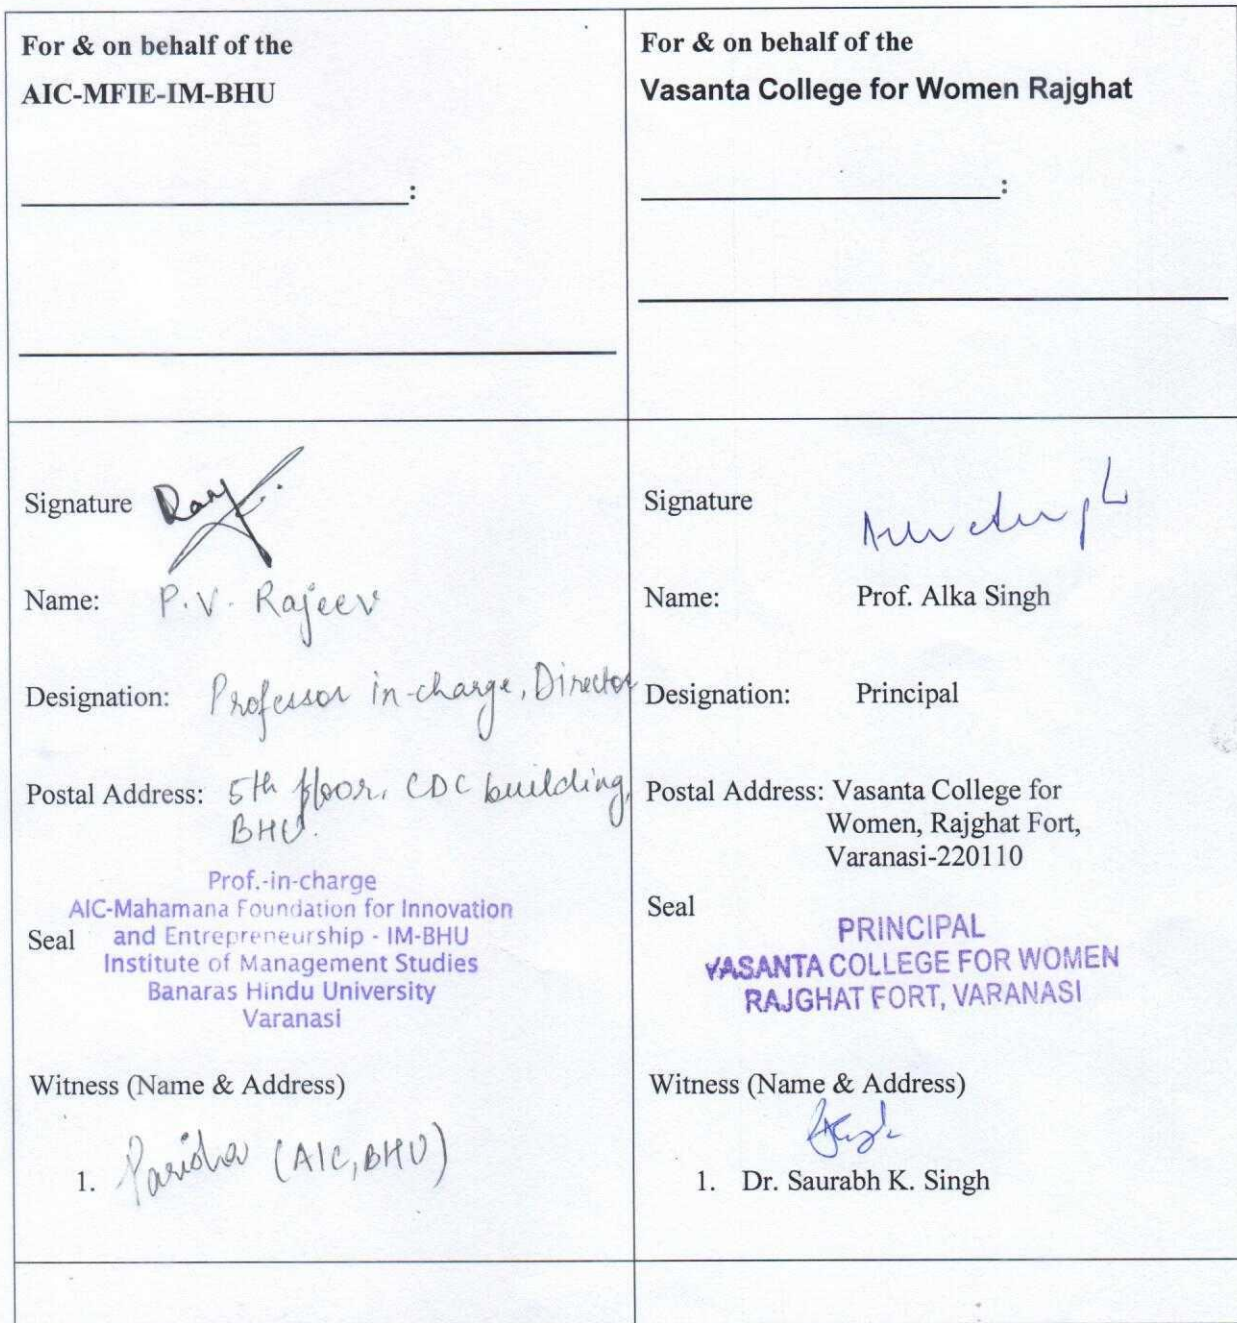 For & on behalf of the
AIC-MFIE-IM-BHU
:
Signature
Name: P.V. Rajeev
Designation: Professor in-charge, Director
Postal Address: 5th floor, CDC building,
BHU.
Prof.-in-charge
AIC-Mahamana Foundation for Innovation
Seal and Entrepreneurship - IM-BHU
Institute of Management Studies
Banaras Hindu University
Varanasi
Witness (Name & Address)
1. (AIC, BHU)
For & on behalf of the
Vasanta College for Women Rajghat
:
Signature
Name: Prof. Alka Singh
Designation: Principal
Postal Address: Vasanta College for
Women, Rajghat Fort,
Varanasi-220110
Seal
PRINCIPAL
VASANTA COLLEGE FOR WOMEN
RAJGHAT FORT, VARANASI
Witness (Name & Address)
1. Dr. Saurabh K. Singh